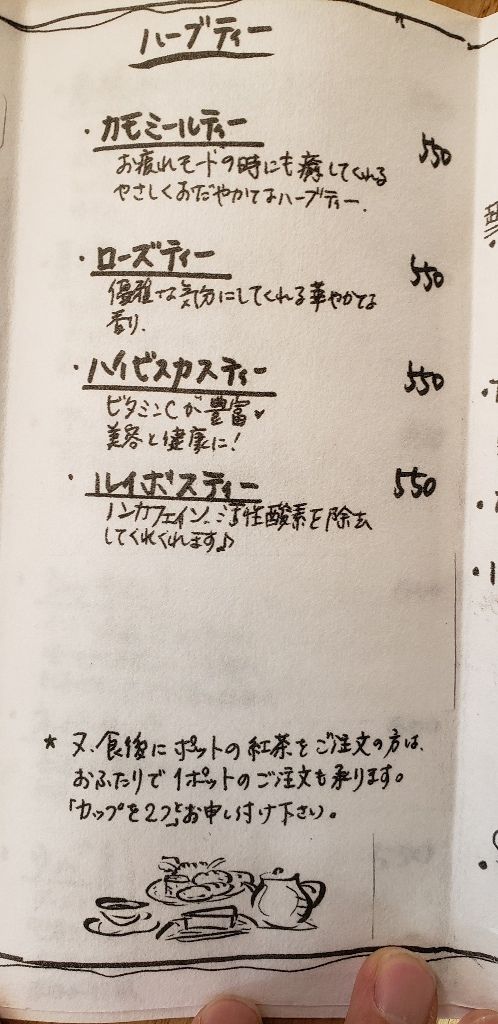 ハーブティー
・カモミールティー 550
お疲れモードの時にも癒してくれる
やさしくおだやかなハーブティー.
・ローズティー 550
優雅な気分にしてくれる華やかな
香り.
・ハイビスカスティー 550
ビタミンCが豊富♥
美容と健康に!
・ルイボスティー 550
ノンカフェイン、活性酸素を除去
してくれくれます♪
★ 又、食後にポットの紅茶をご注文の方は、
おふたりで1ポットのご注文も承ります。
「カップを2つ」とお申し付け下さい。